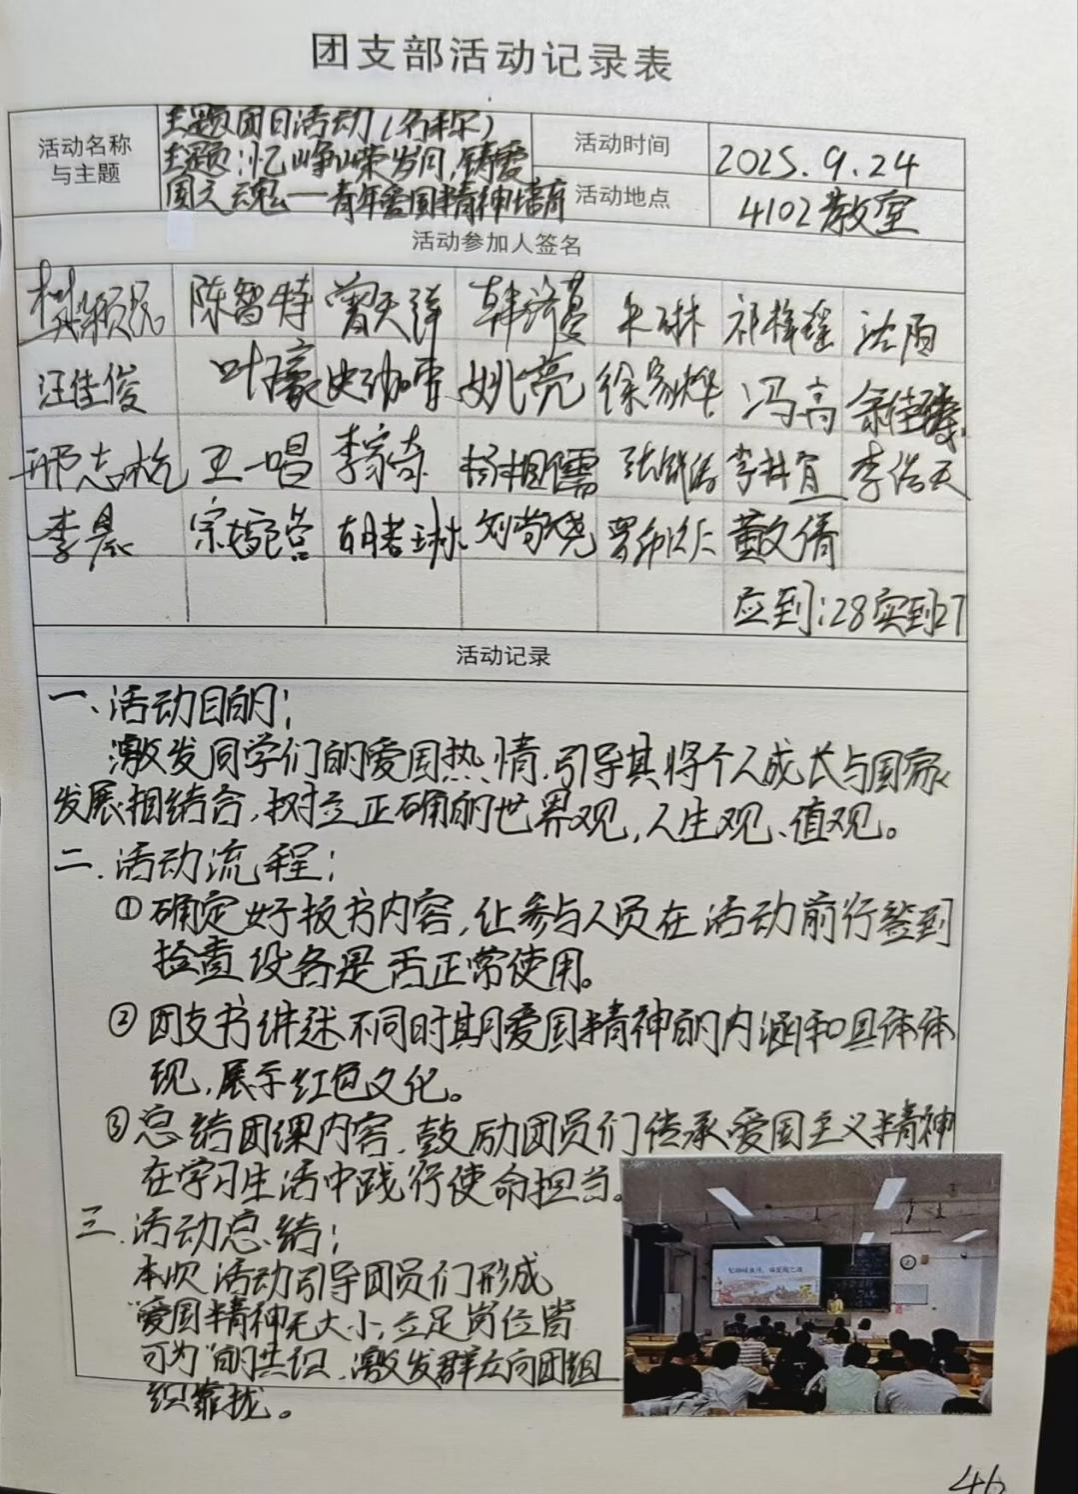 团支部活动记录表
活动名称与主题
主题团日活动（名称）
主题：忆峥嵘岁月，铸爱
国之魂——青年爱国精神培育
活动时间 2025.9.24
活动地点 4102教室
活动参加人签名
陈智特 曾天祥 朱琳 祁梓瑶 沈陌
汪佳俊 叶豪 姚亮 徐家烨 冯高
邢志杭 王一唱 李家奇 李浩天
李晨 宗婉营 董文倩
应到：28实到27
活动记录
一、活动目的：
激发同学们的爱国热情，引导其将个人成长与国家
发展相结合，树立正确的世界观，人生观、值观。
二.活动流程：
①确定好板书内容，让参与人员在活动前行签到
捡查设备是否正常使用。
②团支书讲述不同时期爱国精神的内涵和具体体
现，展示红色文化。
③总结团课内容，鼓励团员们传承爱国主义精神
在学习生活中践行使命担当。
三.活动总结：
本次活动引导团员们形成
“爱国精神无大小，立足岗位皆
可为”的共识，激发群众向团组
织靠拢。
46